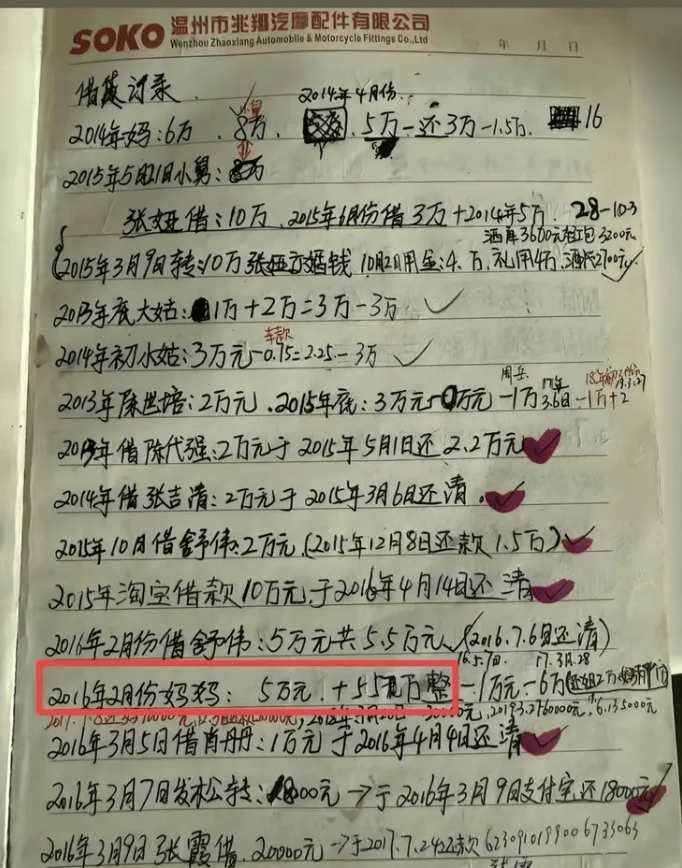 SOKO 温州市兆翔汽摩配件有限公司
Wenzhou Zhaoxiang Automobile & Motorcycle Fittings Co.,Ltd
年 月 日
借贷记录
2014年4月份
2014年妈:6万 8万 5万-还3万-1.5万 16
2015年5月21日小舅:
张娅借:10万 2015年6月份借3万+2014年5万 28-10-3
酒席3600元红包3200元
2015年3月9日转:10万张娅 婚钱 10月2日用金:4万 礼用4万 2700元
2013年底大姑:1万+2万=3万-3万
车款
2014年初小姑:3万元-0.75=2.25-3万
2013年陈世培:2万元 2015年底:3万元 万元-1万 3.6日-1万+2
2013年借陈代强:2万元于2015年5月1日还2.2万元
2014年借张吉清:2万元于2015年3月6日还清
2015年10月借舒伟:2万元(2015年12月8日还款1.5万)
2015年淘宝借款10万元于2016年4月14日还清
2016年2月份借舒伟:5万元共5.5万元(2016.7.6日还清)
16.5.7日 17.3月.28
2016年2月份妈妈:5万元+5.5万整-1万元-6万
2016年3月5日借肖丹丹:1万元于2016年4月4日还清
2016年3月7日 转:18000元→于2016年3月9日支付宝还18000元
2016年3月9日张霞借20000元→于2017.7.24